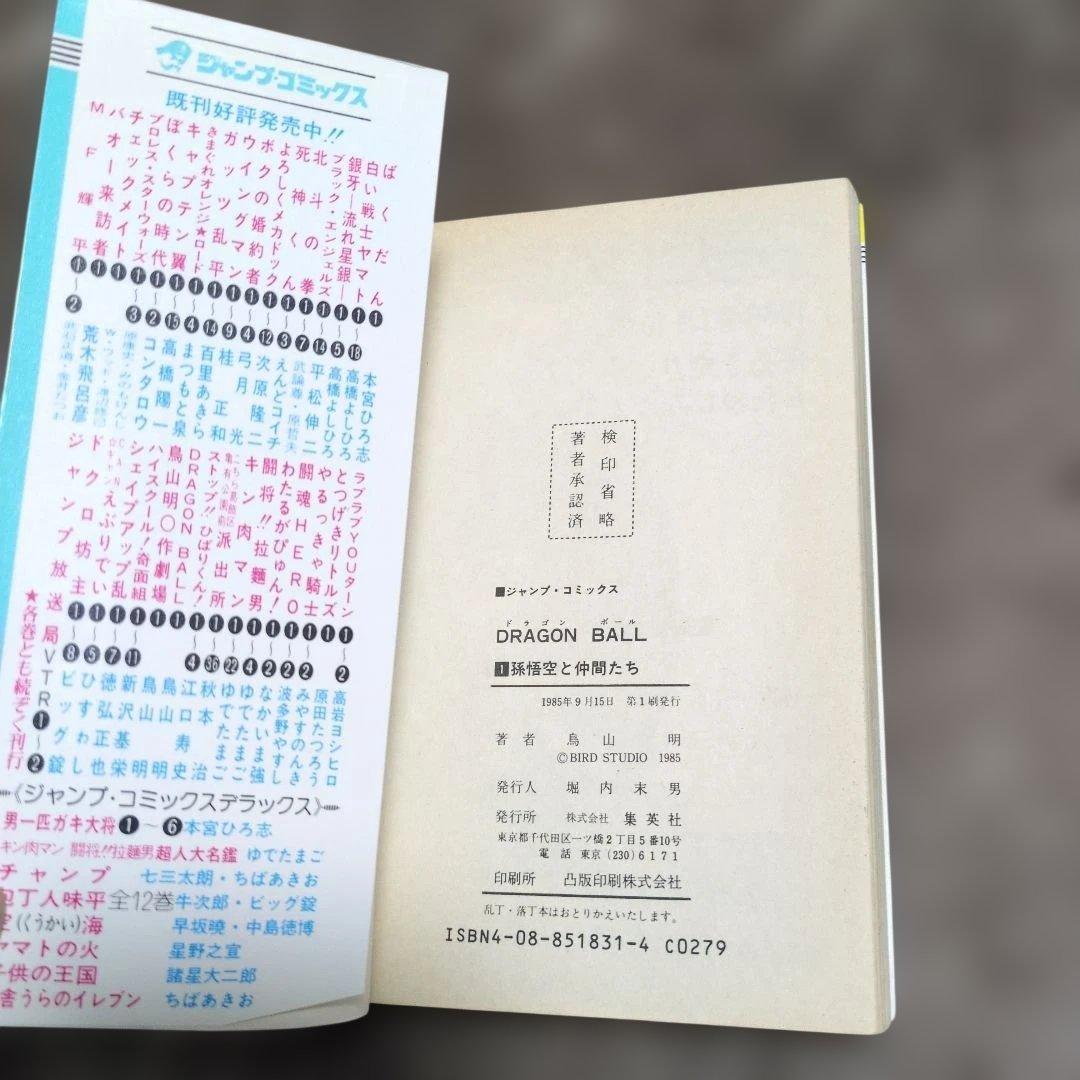 ジャンプ・コミックス
既刊好評発売中!!
ばくだん❶
白い戦士ヤマト❶～⓲本宮ひろ志
銀牙―流れ星銀―❶～❺高橋よしひろ
ブラック・エンジェルズ❶～⓮高橋よしひろ
北斗の拳❶～❼平松伸二
死神くん❶～❸武論尊・原哲夫
よろしくメカドック❶～⓬えんどコイチ
ボクの婚約者❶～❹次原隆二
ウイングマン❶～❾弓月光
ガッツ乱平❶～⓮桂正和
きまぐれオレンジ★ロード❶～❹百里あきら
キャプテン翼❶～⓯まつもと泉
ぼくらの時代❶～❷高橋陽一
プロレス・スターウォーズ❶～❸コンタロウ
チェックメイト❶
バオー来訪者❶
M F 輝平❶～❷荒木飛呂彦
ラブラブYOUターン❶～❷高岩ヨシヒロ
とつげきリトルズ❶
やるっきゃ騎士❶～❷
闘魂HERO❶～❷
わたるがぴゅん!❶～❷なかいま強
闘将!!拉麵男❶～❹ゆでたまご
キン肉マン❶～㉒ゆでたまご
こちら葛飾区亀有公園前派出所❶～㊱秋本治
ストップ!!ひばりくん!❶～❹江口寿史
DRAGON BALL❶鳥山明
鳥山明〇作劇場❶鳥山明
ハイスクール!奇面組❶～⓫新沢基栄
シェイプアップ乱❶～❼徳弘正也
ジャンプ放送局VTR❶～❷
★各巻とも続ぞく刊行
《ジャンプ・コミックスデラックス》
男一匹ガキ大将❶～❻本宮ひろ志
キン肉マン 闘将!!拉麵男 超人大名鑑 ゆでたまご
チャンプ 七三太朗・ちばあきお
包丁人味平 全12巻 牛次郎・ビッグ錠
(くうかい)海 早坂暁・中島徳博
ヤマトの火 星野之宣
子供の王国 諸星大二郎
舎うらのイレブン ちばあきお
検印省略
著者承認済
■ジャンプ・コミックス
ドラゴン ボール
DRAGON BALL
1孫悟空と仲間たち
1985年9月15日 第1刷発行
著者 鳥山 明
©BIRD STUDIO 1985
発行人 堀内末男
発行所 株式会社 集英社
東京都千代田区一ツ橋2丁目5番10号
電話 東京(230)6171
印刷所 凸版印刷株式会社
乱丁・落丁本はおとりかえいたします。
ISBN4-08-851831-4 C0279